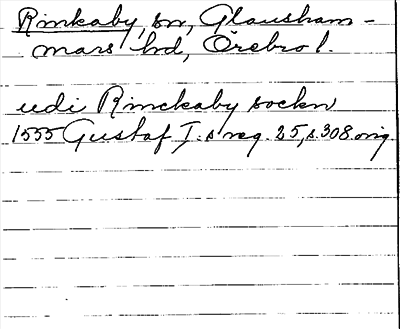 Rinkaby, sn, Glansham-
mars hd, Örebro l.
udi Rinckaby sockn
1555 Gustaf I:s reg. 25, s. 308. orig.